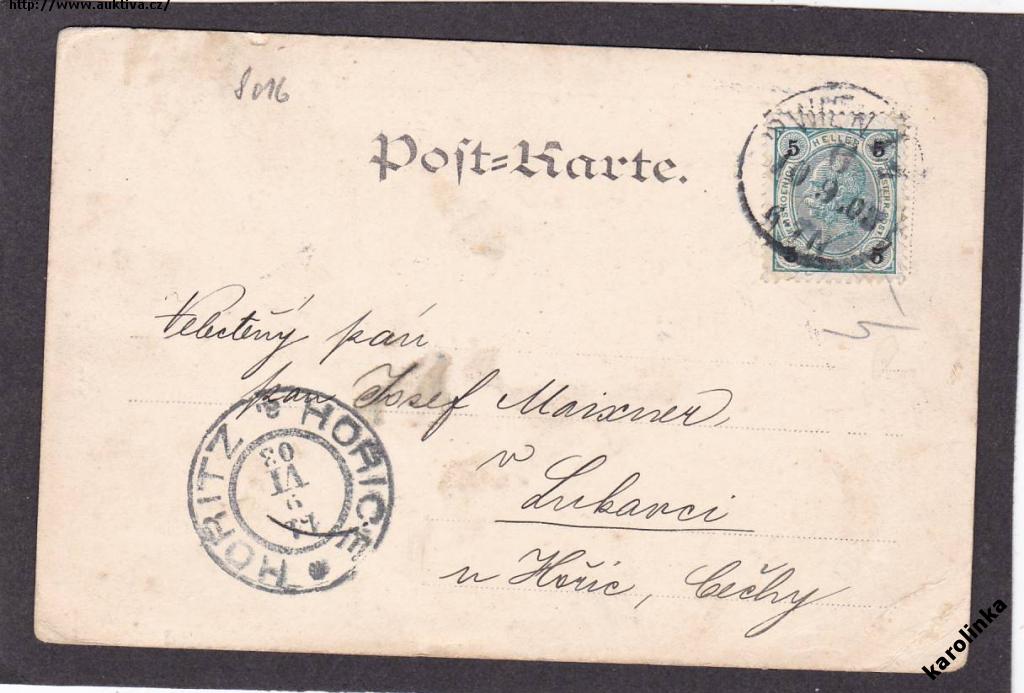 http://www.auktiva.cz/
8016
Post=Karte.
WIEN
5 HELLER 5
5 5
Velectěný pán
pan Josef Maixner
v
Lukavci
u Hořic, Čechy
HORITZ * HOŘICE *
03
VI
9
karolinka